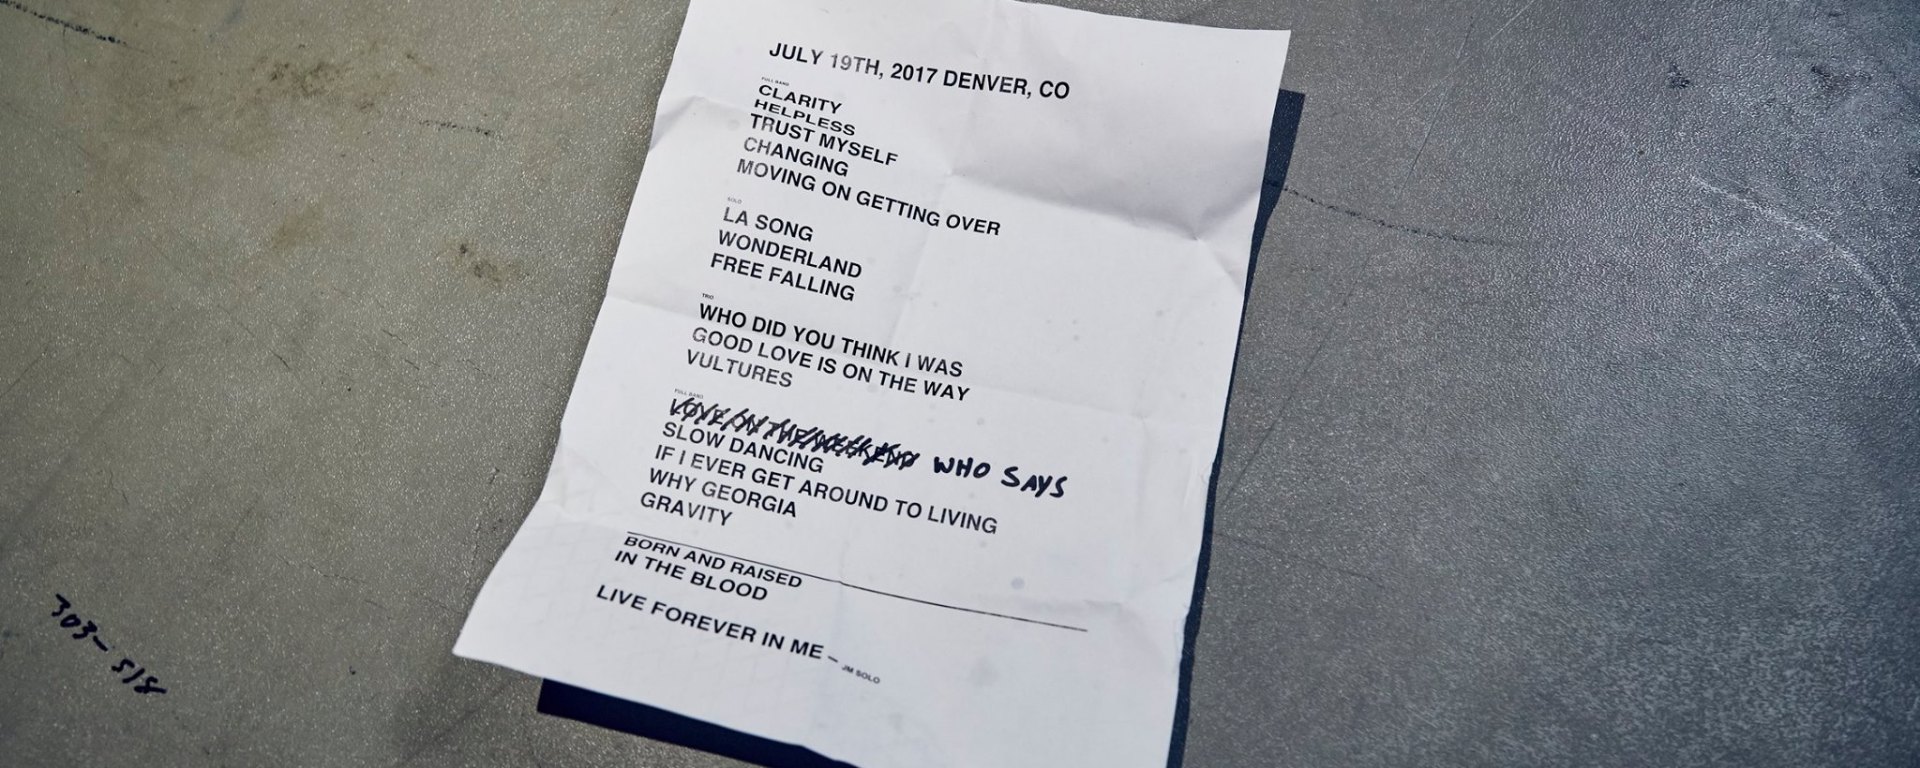 JULY 19TH, 2017 DENVER, CO
FULL BAND
CLARITY
HELPLESS
TRUST MYSELF
CHANGING
MOVING ON GETTING OVER
SOLO
LA SONG
WONDERLAND
FREE FALLING
TRIO
WHO DID YOU THINK I WAS
GOOD LOVE IS ON THE WAY
VULTURES
FULL BAND
LOVE ON THE WEEKEND WHO SAYS
SLOW DANCING
IF I EVER GET AROUND TO LIVING
WHY GEORGIA
GRAVITY
BORN AND RAISED
IN THE BLOOD
LIVE FOREVER IN ME – JM SOLO
303-518